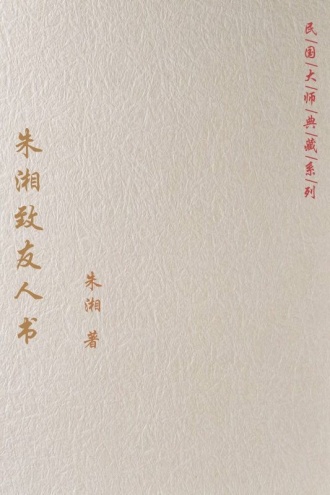 民国大师典藏系列
朱湘致友人书
朱湘 著